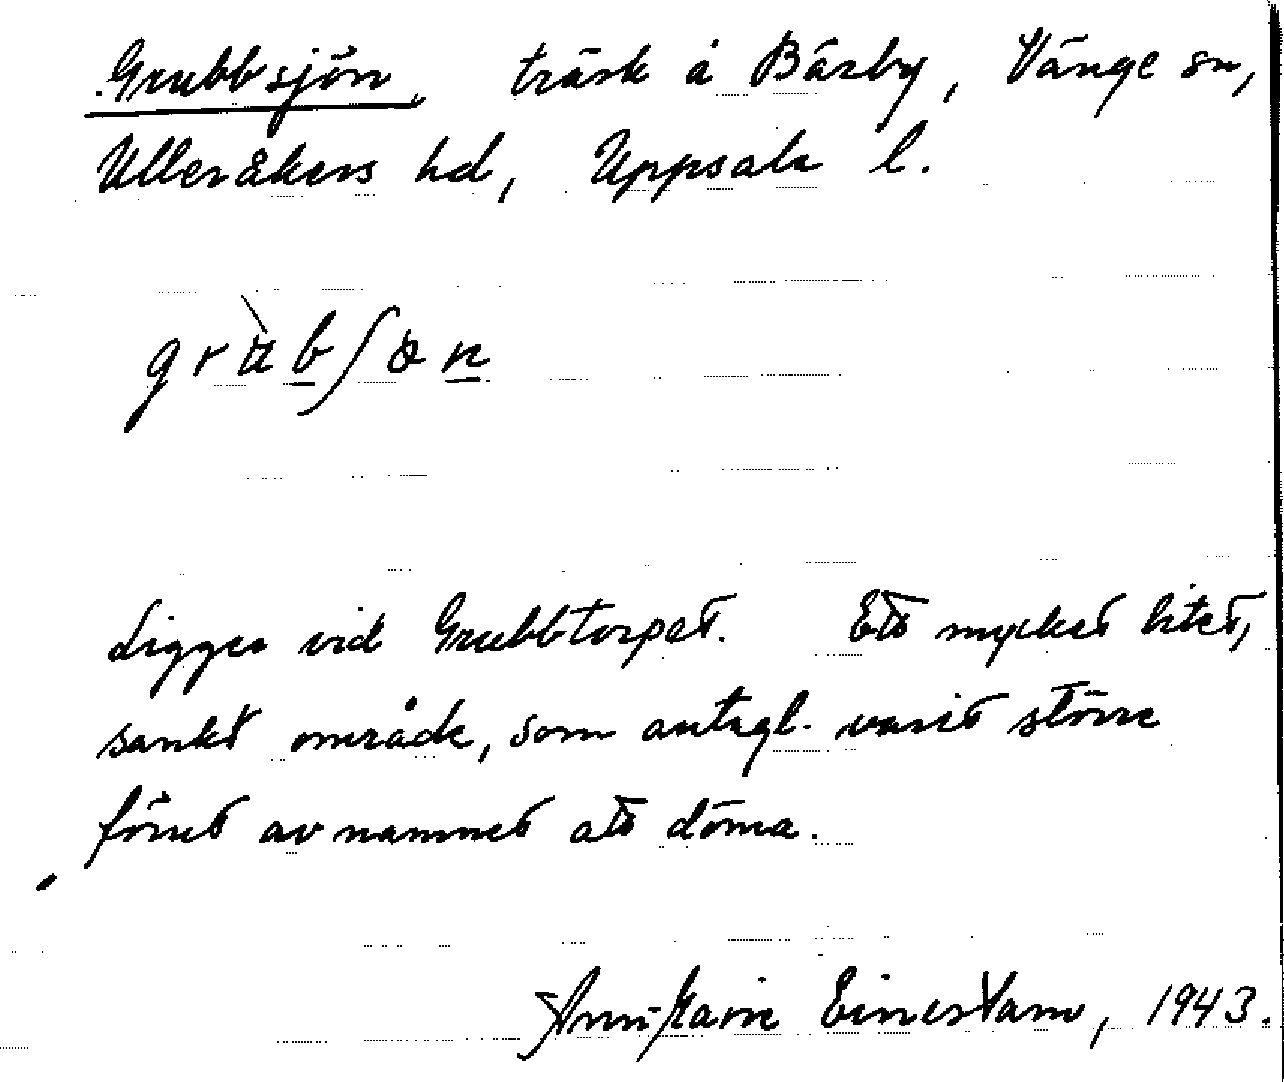 Grubbsjön, träsk å Bärby, Vänge sn,
Ulleråkers hd, Uppsala l.
Ligger vid Grubbtorpet. Ett mycket litet,
sankt område, som antagl. varit större
förut av namnet att döma.
1943.